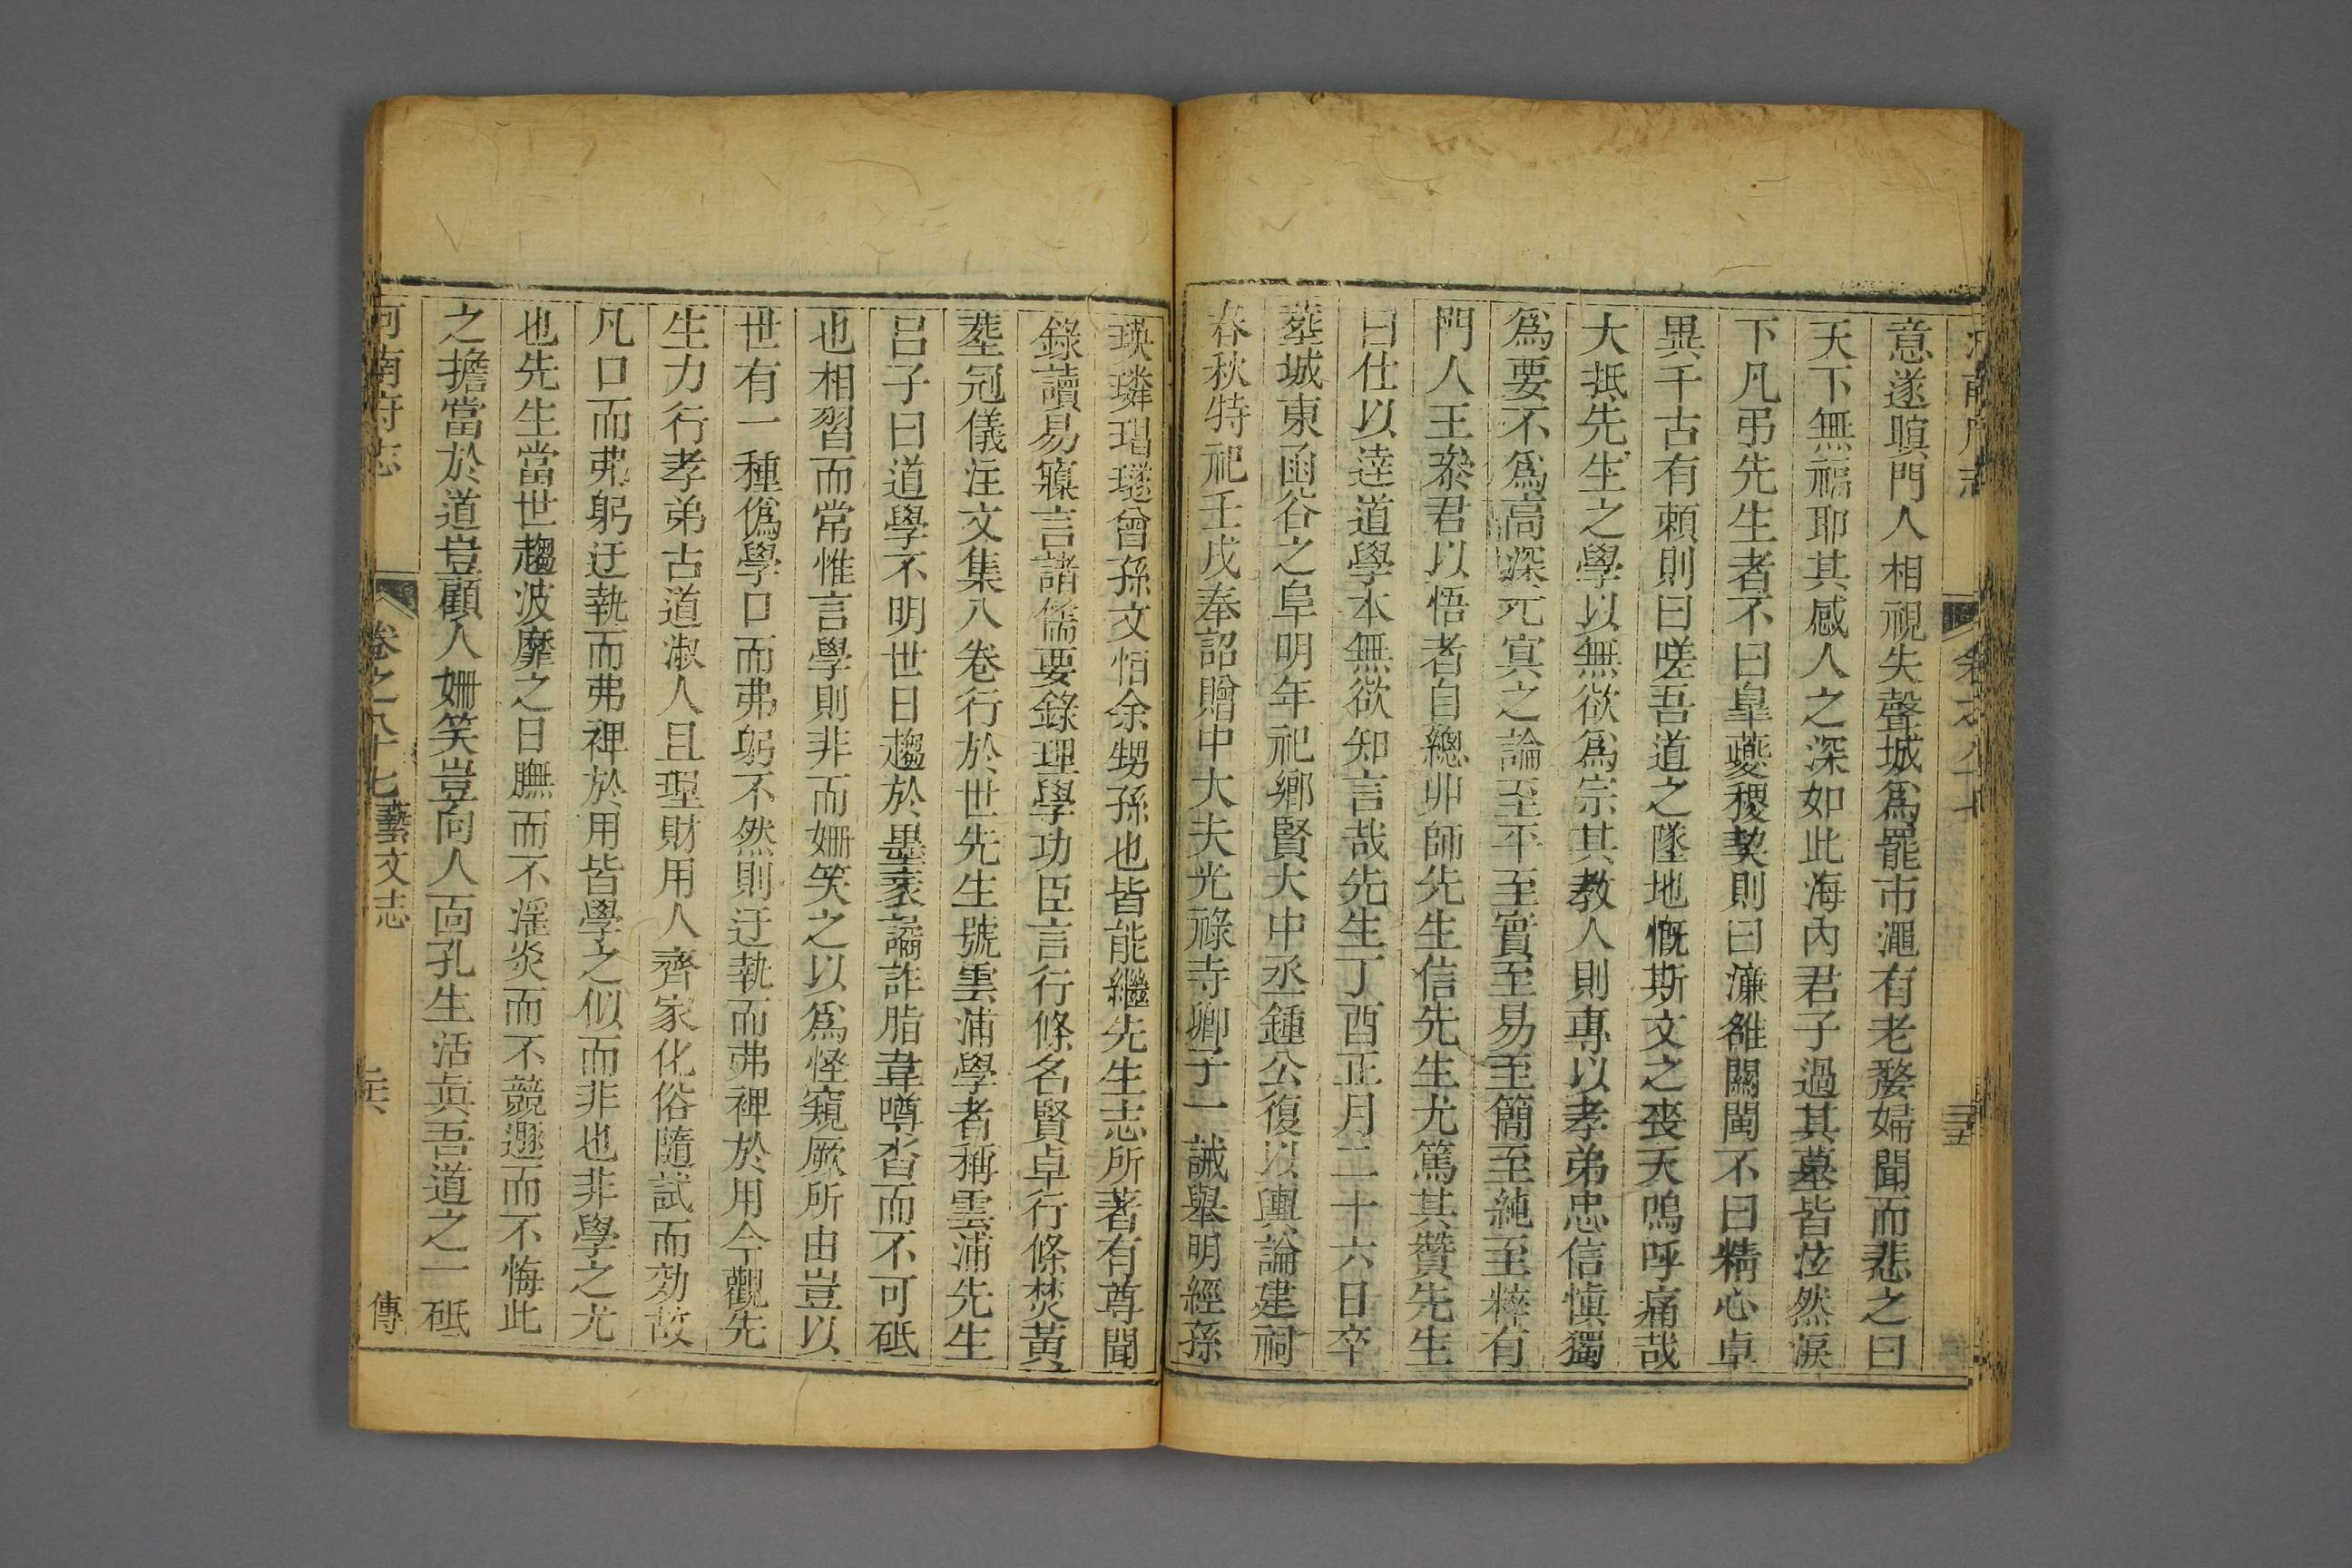 意遂瞑門人相視失聲城爲罷市澠有老婺婦聞而悲之曰
天下無福耶其感人之深如此海內君子過其墓皆泫然淚
下凡弔先生者不曰皐夔稷契則曰濂雒關閩不曰精心卓
異千古有賴則曰嗟吾道之墜地慨斯文之丧天嗚呼痛哉
大抵先生之學以無欲爲宗其教人則專以孝弟忠信愼獨
爲要不爲高深元㝠之論至平至實至易至簡至純至粹有
門人王叅君以悟者自總丱師先生信先生尤篤其贊先生
曰仕以達道學本無欲知言哉先生丁酉正月二十六日卒
塟城東函谷之阜明年祀鄉賢大中丞鍾公復以輿論建祠
春秋特祀壬戌奉詔贈中大夫光祿寺卿子一諴舉明經孫
瑛璘琩璲曾孫文佰余甥孫也皆能繼先生志所著有尊聞
錄讀易寱言諸儒要錄理學功臣言行條名賢卓行條焚黃
塟冠儀注文集八卷行於世先生號雲浦學者稱雲浦先生
呂子曰道學不明世日趨於畢袤譎詐脂韋噂沓而不可砥
也相習而常惟言學則非而姍笑之以爲怪窺厥所由豈以
世有一種僞學口而弗躬不然則迂執而弗裨於用今觀先
生力行孝弟古道淑人且理財用人齊家化俗隨試而効故
凡口而弗躬迂執而弗裨於用皆學之似而非也非學之尤
也先生當世趨波靡之日膴而不淫炎而不競遯而不悔此
之擔當於道豈顧人姍笑豈向人面孔生活眞吾道之一砥
河南府志
卷之八十七藝文志
傳